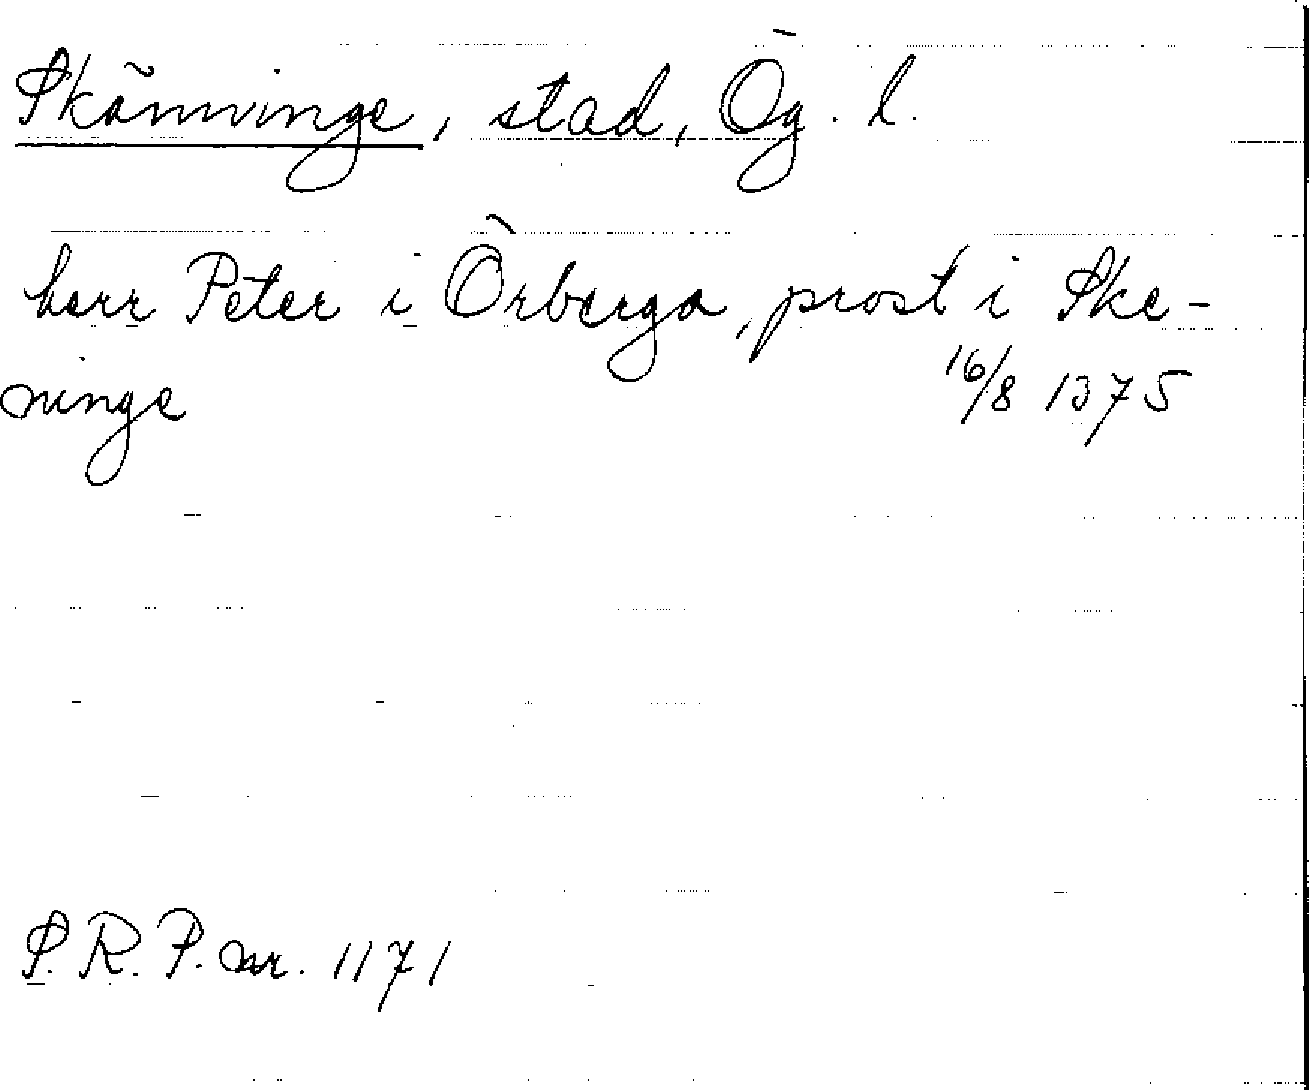 Skänninge, stad, Ög. l.
herr Peter i Örberga, prost i Ske-
ninge 16/8 1375
S. R. P. nr. 1171